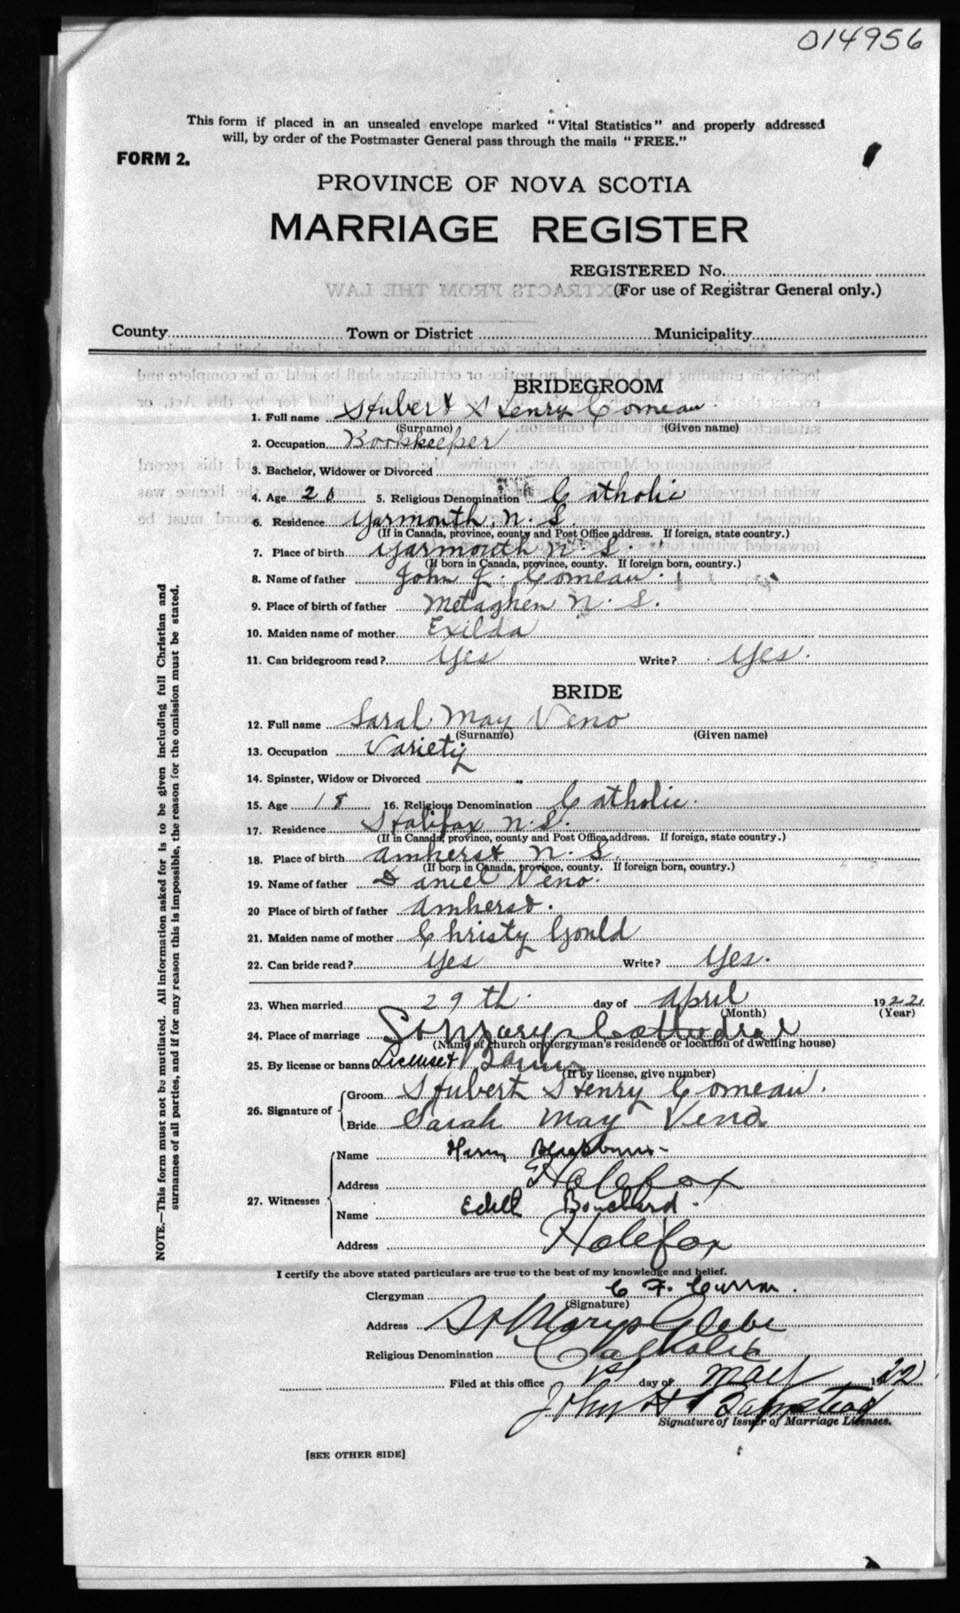 014956
This form if placed in an unsealed envelope marked "Vital Statistics" and properly addressed
will, by order of the Postmaster General pass through the mails "FREE."
FORM 2.
PROVINCE OF NOVA SCOTIA
MARRIAGE REGISTER
REGISTERED No.
(For use of Registrar General only.)
County Town or District Municipality
BRIDEGROOM
1. Full name Hubert Henry Comeau
(Surname) (Given name)
2. Occupation Bookkeeper
3. Bachelor, Widower or Divorced
4. Age 20 5. Religious Denomination Catholic
6. Residence Yarmouth, N. S.
(If in Canada, province, county and Post Office address. If foreign, state country.)
7. Place of birth Yarmouth N. S.
(If born in Canada, province, county. If foreign born, country.)
8. Name of father John J. Comeau
9. Place of birth of father Metaghen N. S.
10. Maiden name of mother Exilda
11. Can bridegroom read? Yes Write? Yes.
BRIDE
12. Full name Sarah May Veno
(Surname) (Given name)
13. Occupation Variety
14. Spinster, Widow or Divorced "
15. Age 18 16. Religious Denomination Catholic.
17. Residence Halifax N. S.
(If in Canada, province, county and Post Office address. If foreign, state country.)
18. Place of birth Amherst N. S.
(If born in Canada, province, county. If foreign born, country.)
19. Name of father Daniel Veno.
20 Place of birth of father Amherst.
21. Maiden name of mother Christy Gould
22. Can bride read? Yes Write? Yes.
23. When married 29th day of April 1922
(Month) (Year)
24. Place of marriage St Marys Cathedral
(Name of church or clergyman's residence or location of dwelling house)
25. By license or banns License & Banns
(If by license, give number)
26. Signature of Groom Hubert Henry Comeau.
Bride Sarah May Veno
27. Witnesses
Name
Address Halefax
Name Bouchard.
Address Halefax
I certify the above stated particulars are true to the best of my knowledge and belief.
Clergyman C. F. Curran.
(Signature)
Address St Marys Glebe
Religious Denomination Catholic
Filed at this office 1st day of May 1922
John H
Signature of Issuer of Marriage Licenses.
[SEE OTHER SIDE]
NOTE.—This form must not be mutilated. All information asked for is to be given including full Christian and
surnames of all parties, and if for any reason this is impossible, the reason for the omission must be stated.